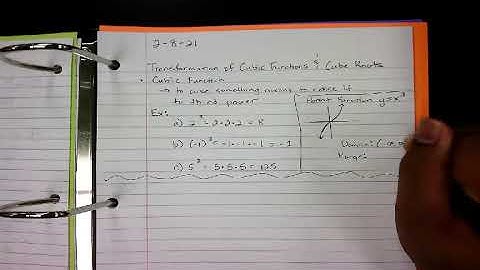 2-8-21
Transformation of Cubic Functions & Cube Roots
• Cubic Function
→ to raise something means to raise it
to 3rd power
Ex:
a) 2³ = 2·2·2 = 8
b) (-1)³ = -1·-1·-1 = -1
c) 5³ = 5·5·5 = 125
Parent Function y=x³
Domain: (-∞
Range: